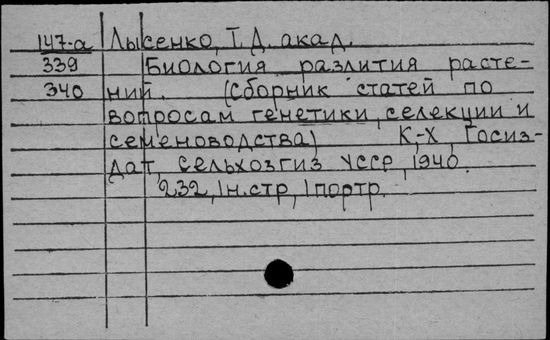 147-а Лысенко, Т.Д. акад.
339 Биология разлития расте-
340 ний. (Сборник статей по
вопросам генетики, селекции и
семеноводства) К.-Х, Госиз-
дат, сельхозгиз УССР, 1940.
232, 1н.стр, 1портр.